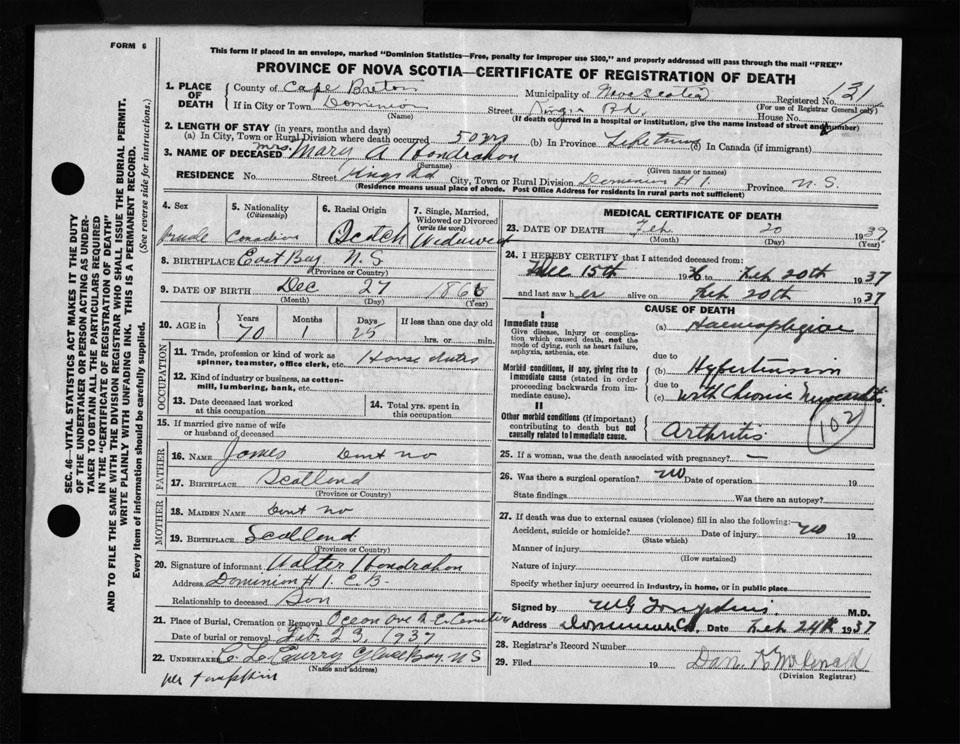 FORM 6
This form if placed in an envelope, marked "Dominion Statistics—Free, penalty for improper use $300," and properly addressed will pass through the mail "FREE"
PROVINCE OF NOVA SCOTIA—CERTIFICATE OF REGISTRATION OF DEATH
1. PLACE OF DEATH
County of Cape Breton Municipality of Nova Scotia Registered No. 131
(For use of Registrar General only)
If in City or Town Dominion Street Kings Rd. House No.
(Name) (If death occurred in a hospital or institution, give the name instead of street and number)
2. LENGTH OF STAY (in years, months and days)
(a) In City, Town or Rural Division where death occurred 50 yrs (b) In Province Life time (c) In Canada (if immigrant)
3. NAME OF DECEASED Mrs. Mary A
(Surname) (Given name or names)
RESIDENCE No. Street Kings Rd City, Town or Rural Division Dominion # 1. Province N. S.
(Residence means usual place of abode. Post Office Address for residents in rural parts not sufficient)
4. Sex
5. Nationality (Citizenship) Canadian
6. Racial Origin Scotch
7. Single, Married, Widowed or Divorced (write the word) Widowed
8. BIRTHPLACE East Bay N. S
(Province or Country)
9. DATE OF BIRTH Dec 27 1866
(Month) (Day) (Year)
10. AGE in Years Months Days If less than one day old
70 1 25 hrs. or min.
OCCUPATION
11. Trade, profession or kind of work as spinner, teamster, office clerk, etc. House duties
12. Kind of industry or business, as cotton-mill, lumbering, bank, etc.
13. Date deceased last worked at this occupation
14. Total yrs. spent in this occupation
15. If married give name of wife or husband of deceased
FATHER
16. Name James Dont no
17. BIRTHPLACE Scotland
(Province or Country)
MOTHER
18. MAIDEN NAME Dont no
19. BIRTHPLACE Scotland
(Province or Country)
20. Signature of informant Walter
Address Dominion # 1. C. B.
Relationship to deceased Son
21. Place of Burial, Cremation or Removal Ocean Ave R. C. Cemetery
Date of burial or removal Feb. 23, 1937
22. UNDERTAKER C. L. Curry Glace Bay, N S
(Name and address)
per Tompkin
MEDICAL CERTIFICATE OF DEATH
23. DATE OF DEATH Feb 20 1937
(Month) (Day) (Year)
24. I HEREBY CERTIFY that I attended deceased from:
Dec 15th 1936 to Feb 20th 1937
and last saw her alive on Feb 20th 1937
CAUSE OF DEATH
I
Immediate cause
Give disease, injury or complication which caused death, not the mode of dying, such as heart failure, asphyxia, asthenia, etc
(a) Haemoplegiae
due to
Morbid conditions, if any, giving rise to immediate cause (stated in order proceeding backwards from immediate cause).
(b) Hypertension
due to
(c) with Chronic Myocarditis
II
Other morbid conditions (if important) contributing to death but not causally related to immediate cause.
Arthritis
102
25. If a woman, was the death associated with pregnancy? —
26. Was there a surgical operation? no Date of operation 19
State findings Was there an autopsy?
27. If death was due to external causes (violence) fill in also the following:
Accident, suicide or homicide? Date of injury no 19
(State which)
Manner of injury
(How sustained)
Nature of injury
Specify whether injury occurred in industry, in home, or in public place
Signed by M.D.
Address Dominion C.B. Date Feb 24th 1937
28. Registrar's Record Number
29. Filed 19 Dan.
(Division Registrar)
SEC. 46—VITAL STATISTICS ACT MAKES IT THE DUTY
OF THE UNDERTAKER OR PERSON ACTING AS UNDER-
TAKER TO OBTAIN ALL THE PARTICULARS REQUIRED
IN THE "CERTIFICATE OF REGISTRATION OF DEATH"
AND TO FILE THE SAME WITH THE DIVISION REGISTRAR WHO SHALL ISSUE THE BURIAL PERMIT.
WRITE PLAINLY WITH UNFADING INK. THIS IS A PERMANENT RECORD.
Every item of information should be carefully supplied. (See reverse side for instructions.)